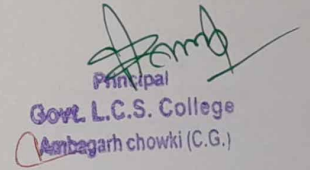 Principal
Govt. L.C.S. College
Ambagarh chowki (C.G.)